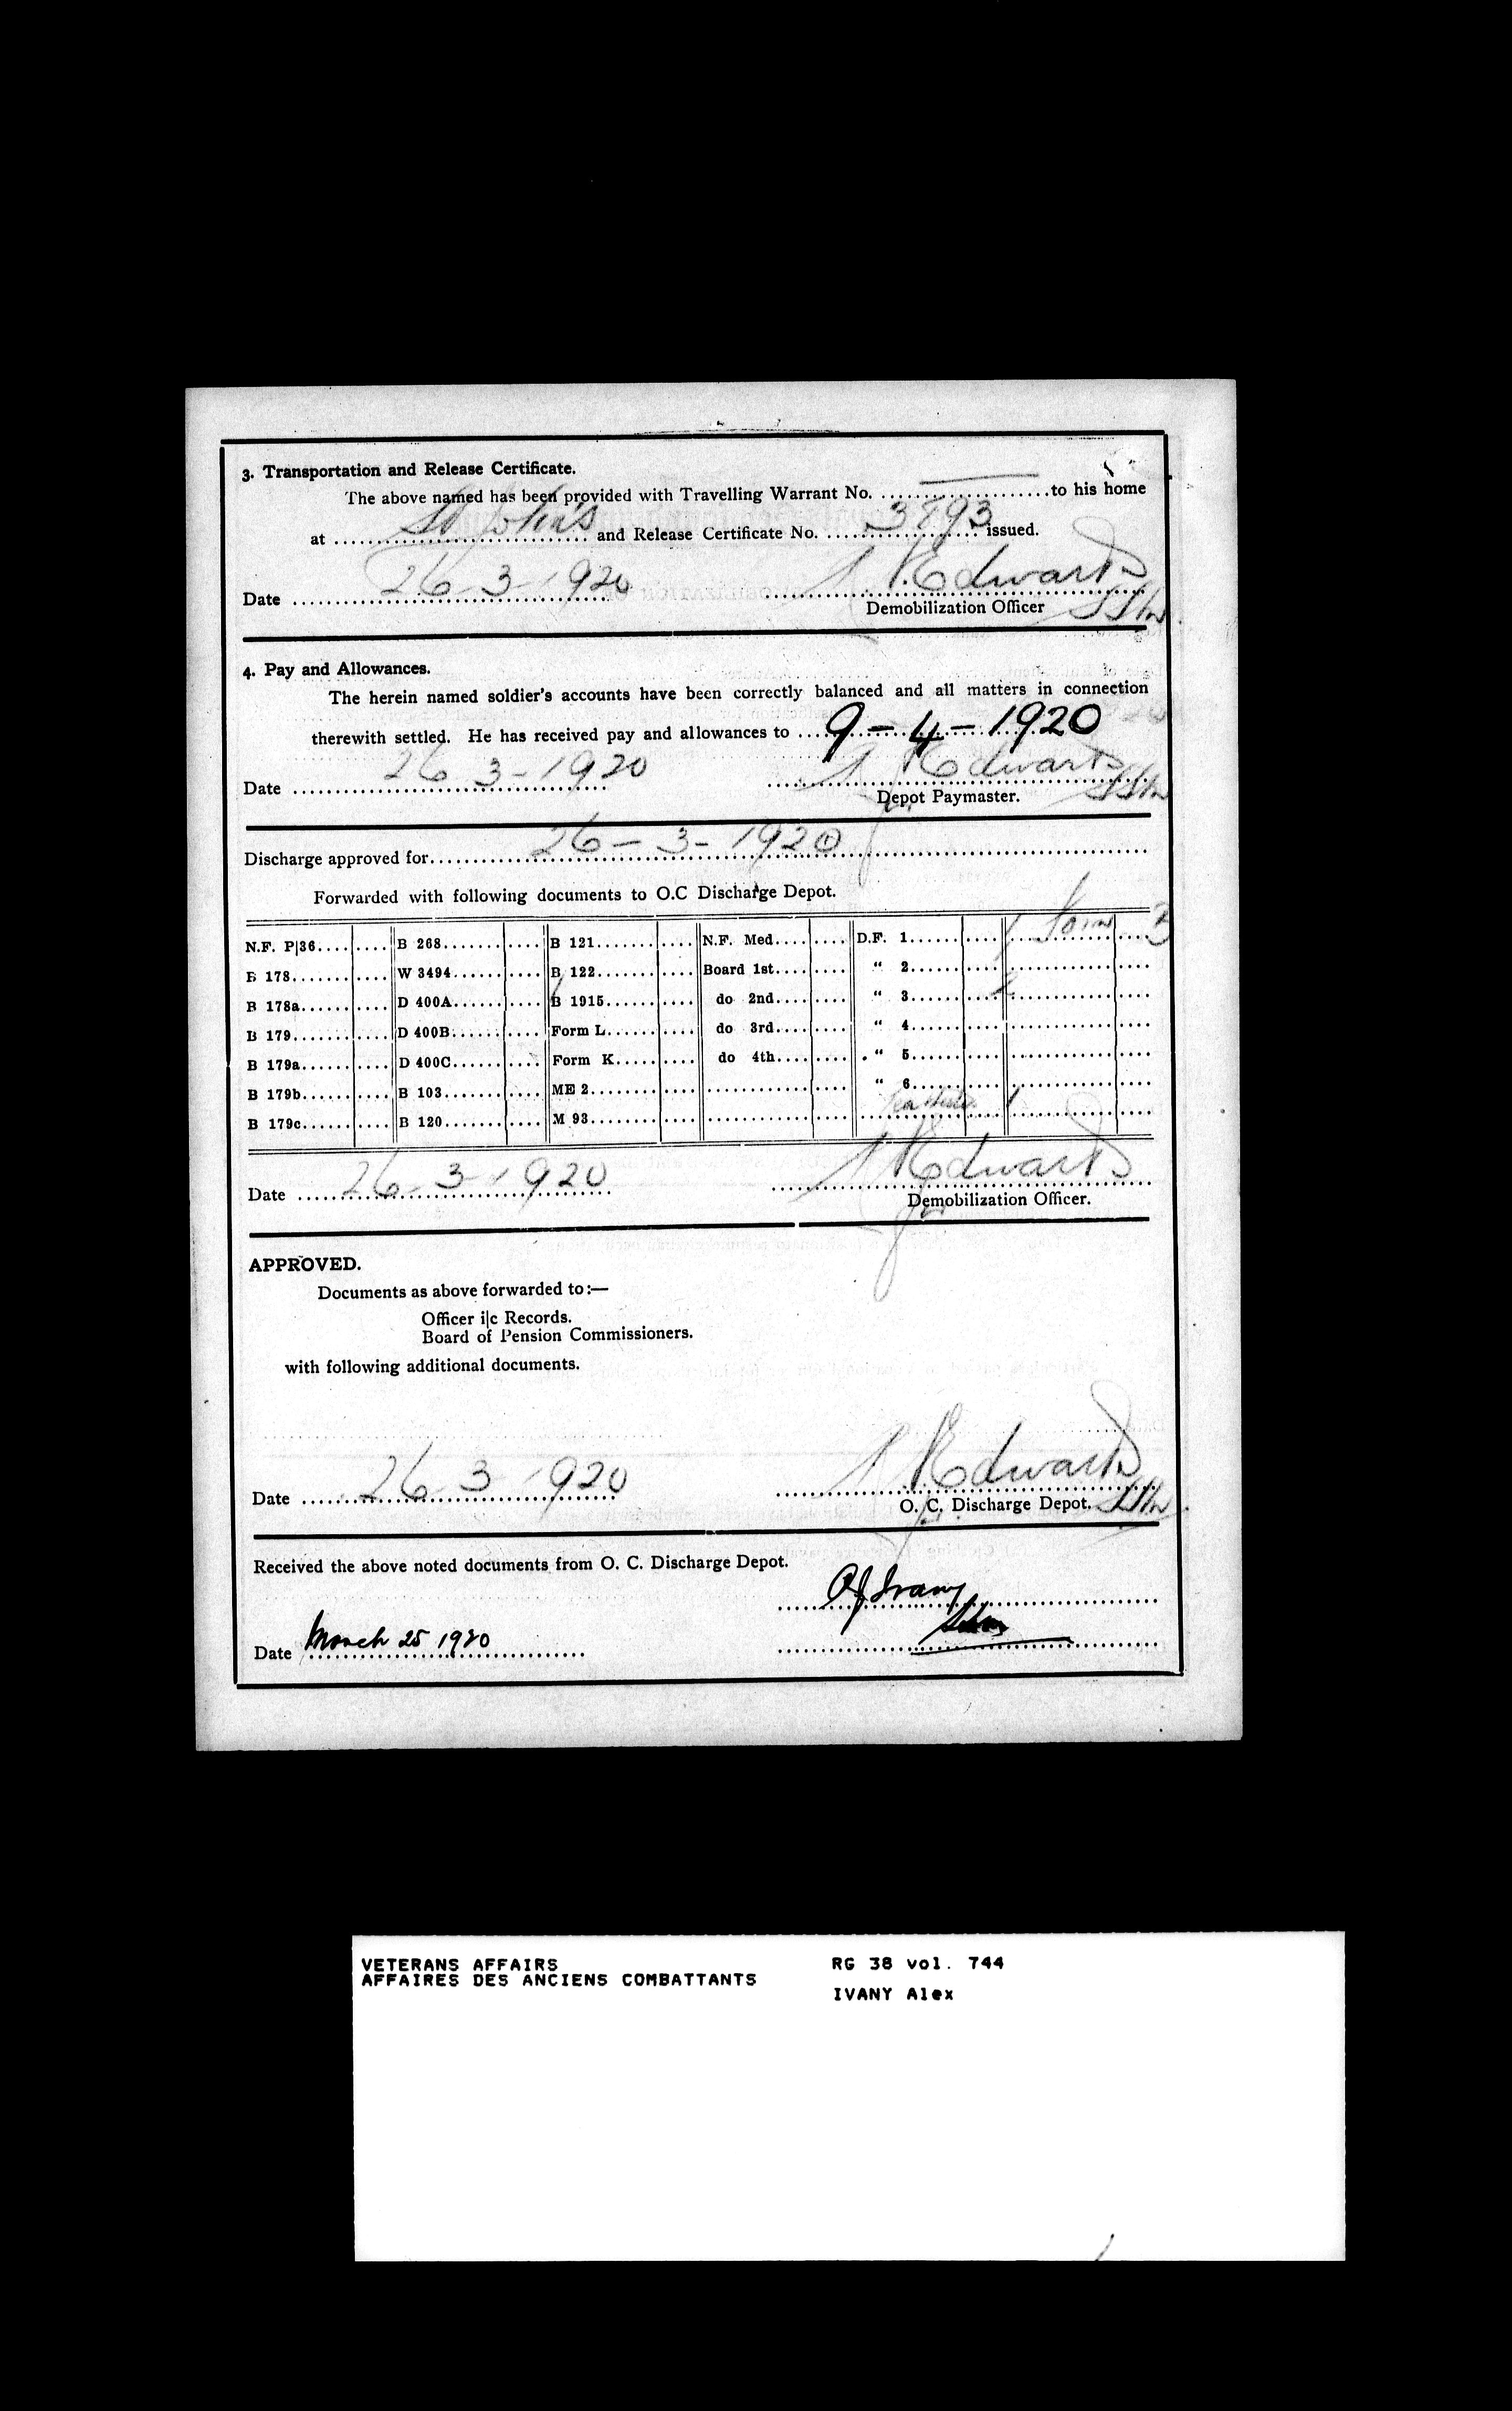 3. Transportation and Release Certificate.
The above named has been provided with Travelling Warrant No. .................... to his home
at St John's and Release Certificate No. 3893 issued.
Date 26-3-1920 Edwards
Demobilization Officer
4. Pay and Allowances.
The herein named soldier's accounts have been correctly balanced and all matters in connection
therewith settled. He has received pay and allowances to 9-4-1920
Date 26 3-1920 Edwards
Depot Paymaster.
Discharge approved for 26-3-1920
Forwarded with following documents to O.C Discharge Depot.
N.F. P|36 B 268 B 121 N.F. Med. D.F. 1
B 178 W 3494 B 122 Board 1st " 2
B 178a D 400A B 1915 do 2nd " 3
B 179 D 400B Form L do 3rd " 4
B 179a D 400C Form K do 4th " 5
B 179b B 103 ME 2 " 6
B 179c B 120 M 93
Date 26 3-1920 Edwards
Demobilization Officer.
APPROVED.
Documents as above forwarded to:—
Officer i|c Records.
Board of Pension Commissioners.
with following additional documents.
Date 26 3 1920 Edwards
O. C. Discharge Depot.
Received the above noted documents from O. C. Discharge Depot.
Ivany
Date March 25 1920
VETERANS AFFAIRS RG 38 vol. 744
AFFAIRES DES ANCIENS COMBATTANTS
IVANY Alex